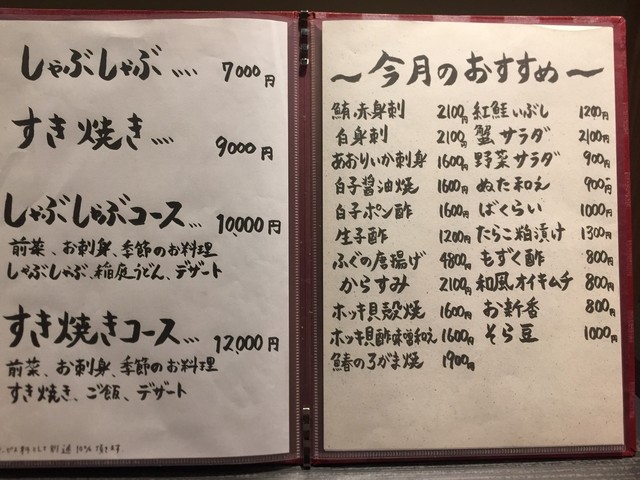 しゃぶしゃぶ.... 7000円
すき焼き.... 9000円
しゃぶしゃぶコース... 10,000円
前菜、お刺身、季節のお料理
しゃぶしゃぶ、稲庭うどん、デザート
すき焼きコース... 12,000円
前菜、お刺身、季節のお料理
すき焼き、ご飯、デザート
10%頂きます
〜今月のおすすめ〜
鮪赤身刺 2100円
白身刺 2100円
あおりいか刺身 1600円
白子醤油焼 1600円
白子ポン酢 1600円
生子酢 1200円
ふぐの唐揚げ 4800円
からすみ 2100円
ホッキ貝殻焼 1600円
ホッキ貝酢味噌和え 1600円
鰆のろがま焼 1900円
紅鮭いぶし 1200円
蟹サラダ 2100円
野菜サラダ 900円
ぬた和え 900円
ばくらい 1000円
たらこ粕漬け 1300円
もずく酢 800円
和風オイキムチ 800円
お新香 800円
そら豆 1000円